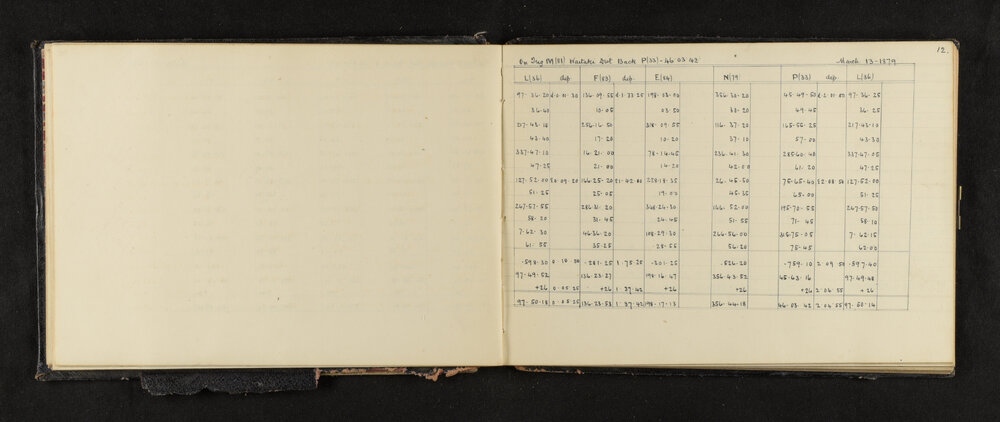 12.
On Trig M(81) Waitaki Hut Back P(33) - 46 03 42 March 13-1879
L(36) dep. F(83) dep. E(84) N(79 P(33) dep. L(36)
97. 36.20 136.09.55 198.03.00 356.30.20 45.49.50 97.36.25
36.40 10.05 03.50 30.20 49.45 36.25
217.43.18 256.16.50 318.09.55 116.37.20 165.56.25 217.43.10
43.40 17.20 10.20 37.10 57.00 43.30
337.47.10 16.21.00 78.14.45 236.41.30 285.60.40 337.47.05
47.25 21.00 14.20 42.00 61.20 47.25
127.52.00 166.25.20 228.18.35 26.45.50 75.65.40 127.52.00
51.25 25.05 19.00 45.35 65.00 51.25
247.57.55 286.31.20 348.24.30 146.52.00 195.70.55 247.57.50
58.20 31.45 24.45 51.55 71.45 58.10
7.62.30 46.36.20 108.29.30 266.56.00 315.75.05 7.62.15
61.55 35.25 28.55 56.20 75.45 62.00
.598.30 0.10.50 .281.25 3.75.25 .201.25 .526.20 .759.10 2 09 50 .597.40
97.49.52 136.23.27 198.16.47 356.43.52 45.63.16 97.49.48
+26 0.05.25 +26 1.37.42 +26 +26 +26 2 04 55 +26
97.50.18 0.05.25 136.23.53 1.37.42 198.17.13 356.44.18 46.03.42 2 04 55 97.50.14